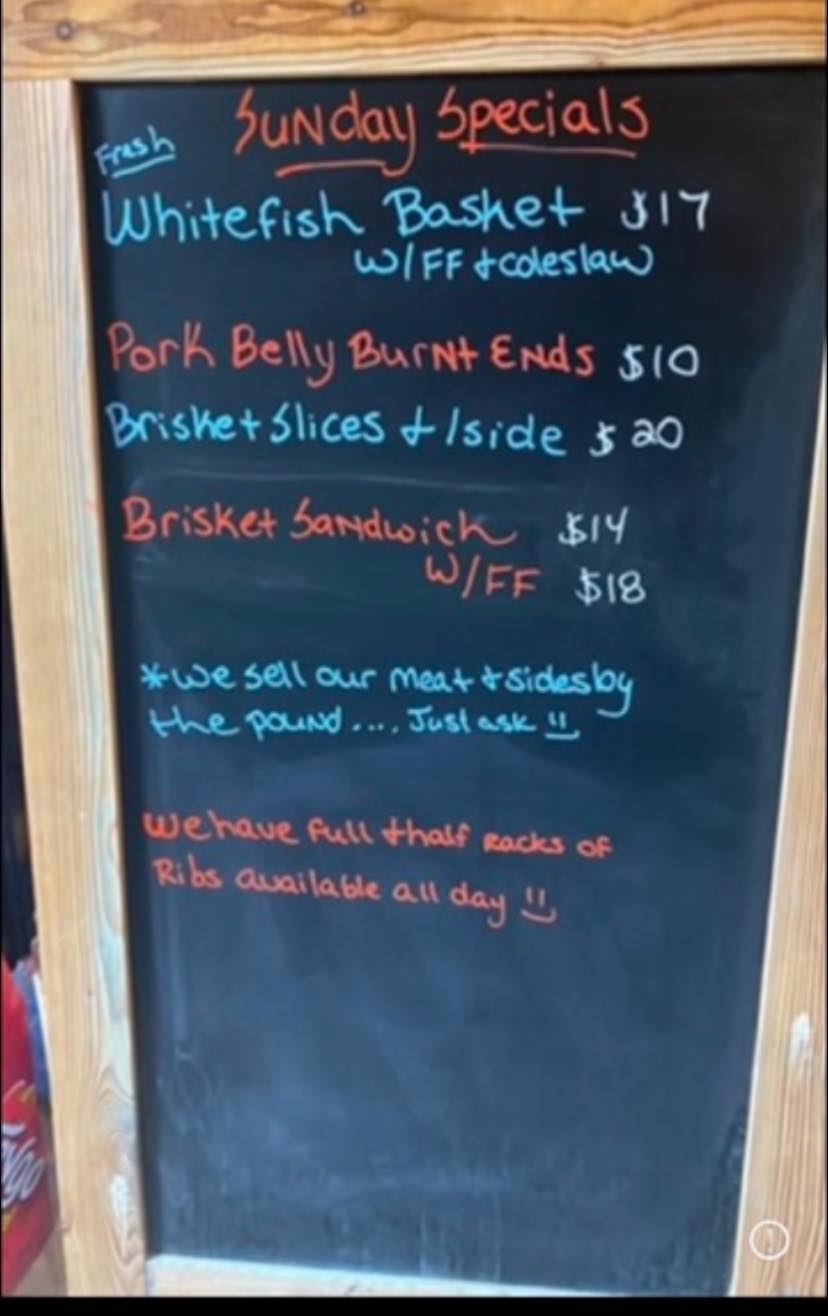 Sunday Specials
Fresh
Whitefish Basket $17
W/FF + coleslaw
Pork Belly Burnt Ends $10
Brisket Slices + 1 side $20
Brisket Sandwich $14
W/FF $18
*we sell our meat + sides by
the pound.... Just ask
we have full + half Racks of
Ribs available all day